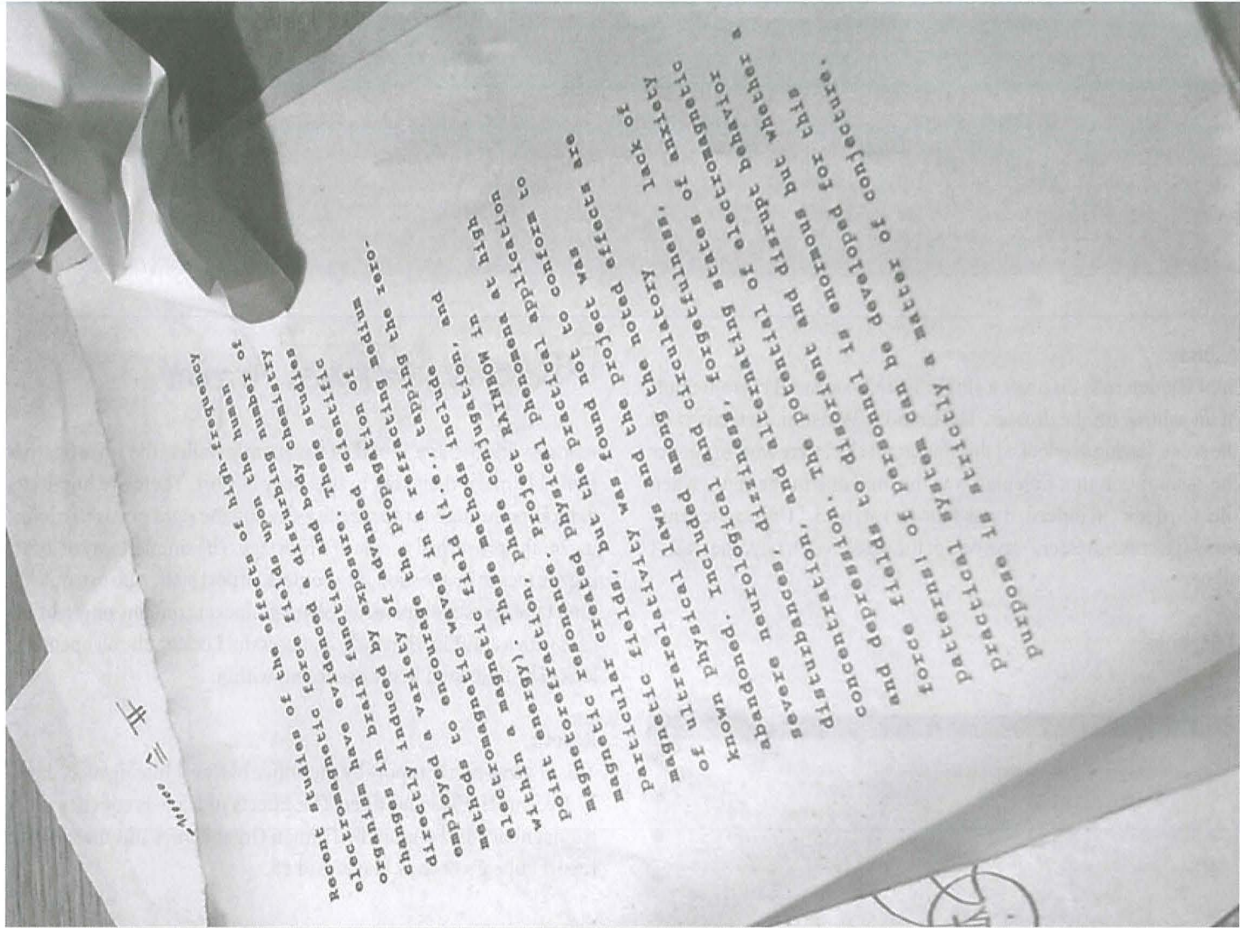 Recent studies of the effects of high-frequency
electromagnetic force fields upon the human
organism have evidenced disturbing number of
changes in brain function and body chemistry
directly induced by exposure. The studies
employed a variety of advanced scientific
methods to encourage the propagation of
electromagnetic field waves in refracting medium
within a magnetic field (i.e., tapping the zero-
point energy). These methods include
magnetorefraction, phase conjugation, and
magnetic resonance. Project RAINBOW in
particular created physical phenomena at high
magnetic fields, but the practical application
of ultrarelativity was found not to conform to
known physical and the project was
abandoned. Included among the noted effects are
severe neurological and circulatory
disturbances, dizziness, forgetfulness, lack of
concentration, and alternating states of anxiety
and depression. The potential of electromagnetic
force fields to disorient and disrupt behavior
patterns of personnel is enormous but whether a
practical system can be developed for this
purpose is strictly a matter of conjecture.